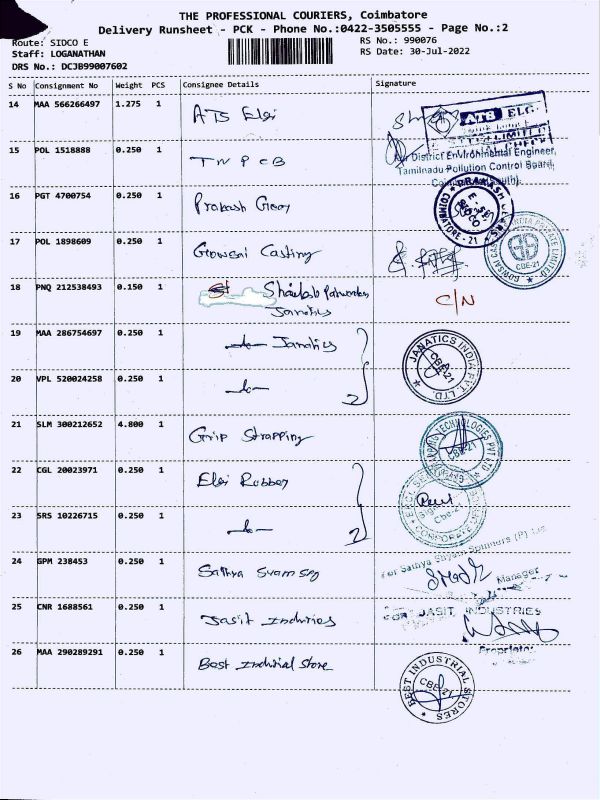 THE PROFESSIONAL COURIERS, Coimbatore
Delivery Runsheet - PCK - Phone No.:0422-3505555 - Page No.:2
Route: SIDCO E
Staff: LOGANATHAN
DRS No.: DCJB99007602
RS No.: 990076
RS Date: 30-Jul-2022
S No Consignment No Weight PCS Consignee Details Signature
14 MAA 566266497 1.275 1 ATS Elgi
ATS ELGI
LIMITED
15 POL 1518888 0.250 1 TNPCB
District Environmental Engineer,
Tamilnadu Pollution Control Board,
16 PGT 4700754 0.250 1 Prakash Gear
PRAKASH GEARS
COIMBATORE - 21
17 POL 1898609 0.250 1 Gowsai Casting
GOWSAI CASTING INDIA PRIVATE LIMITED
CBE-21
18 PNQ 212538493 0.150 1
Janatics
C/N
19 MAA 286754697 0.250 1 -do- Janatics
JANATICS INDIA PVT. LTD
CBE-21
20 VPL 520024258 0.250 1 -do- 2
21 SLM 300212652 4.800 1 Grip Strapping
TECHNOLOGIES PVT LTD
CBE-21
22 CGL 20023971 0.250 1 Elgi Rubber
CORPORATE
23 SRS 10226715 0.250 1 -do- 2
24 GPM 238453 0.250 1 Sathya Syam Spg
For Sathya Shyam Spinners (P) Ltd
Manager
25 CNR 1688561 0.250 1 Jasit Industries
FOR JASIT INDUSTRIES
Proprietor
26 MAA 290289291 0.250 1 Best Industrial Store
BEST INDUSTRIAL STORES
CBE-21